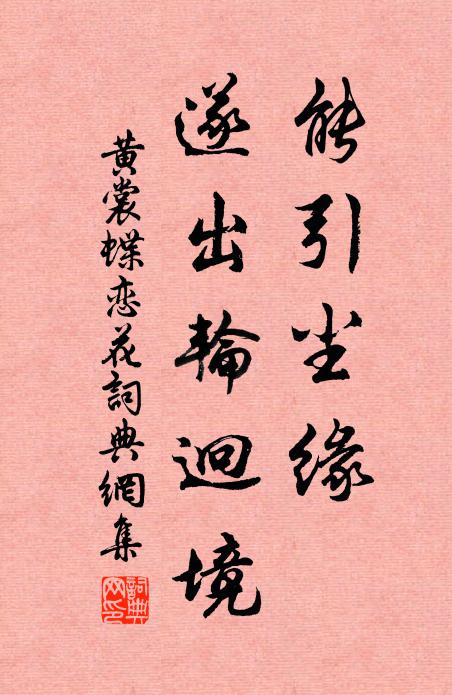 能引尘缘
遂出輪迴境
黄裳蝶恋花詞典網集
詞典網印